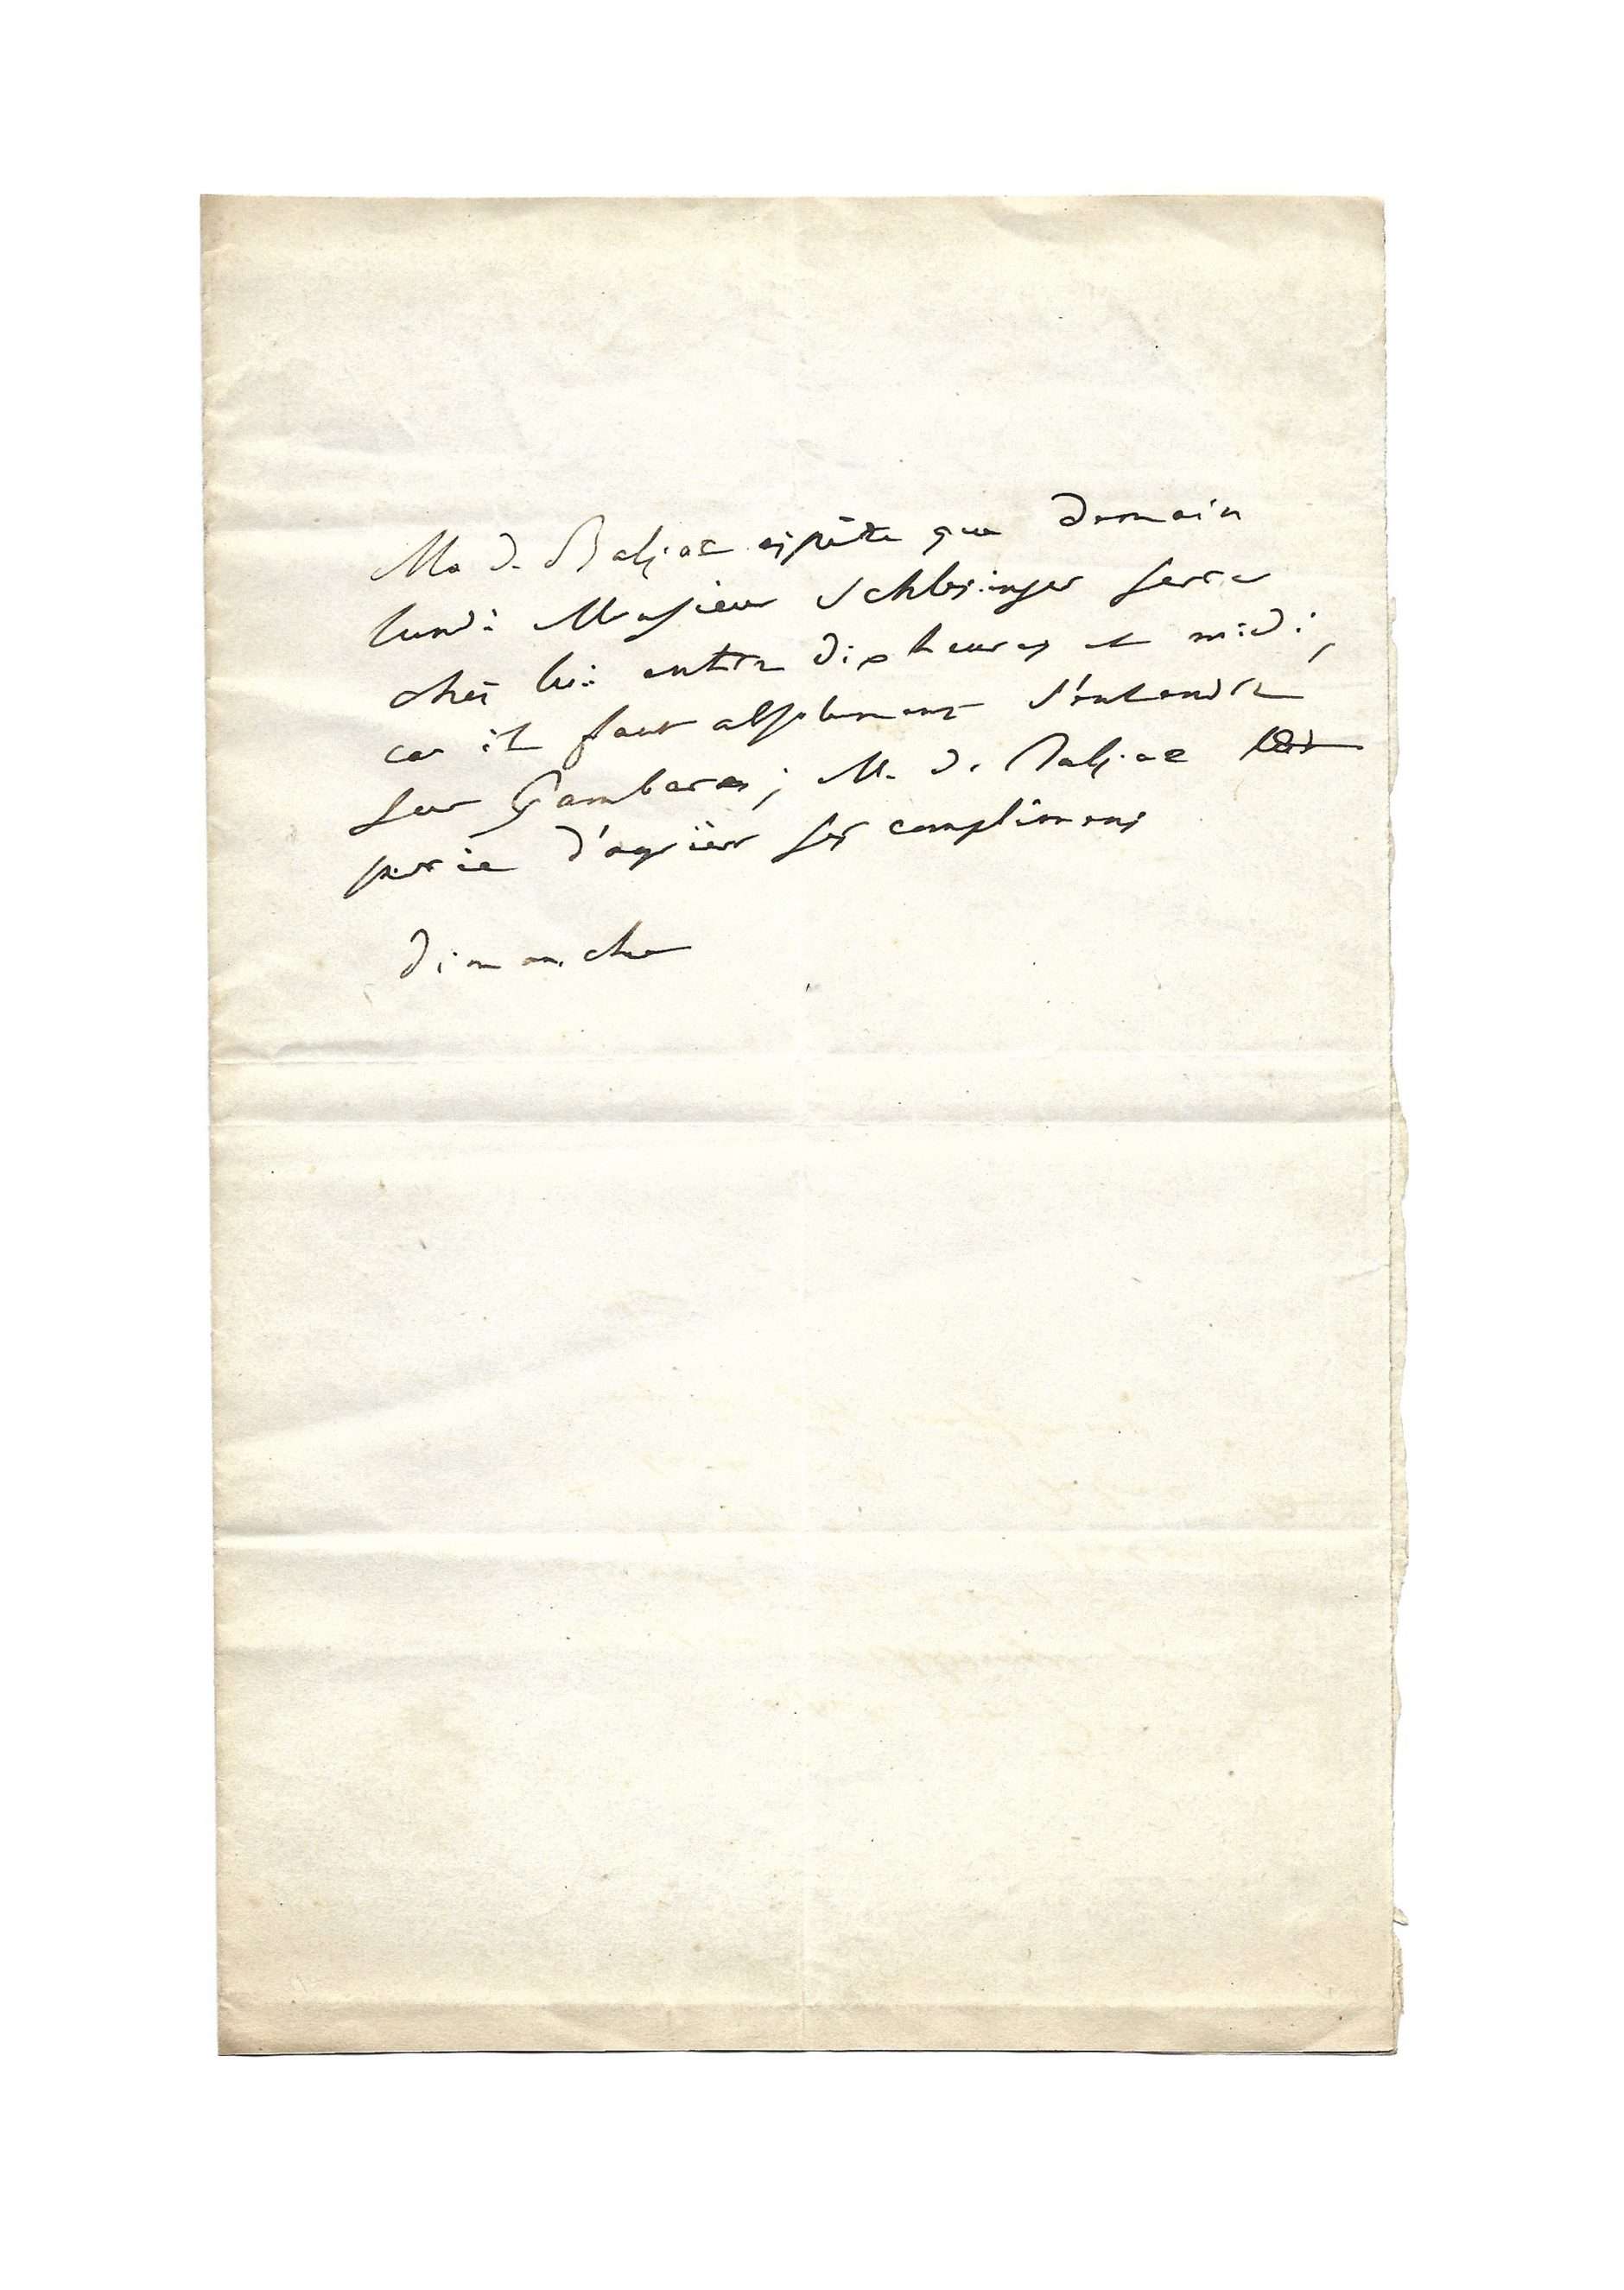 M. de Balzac espère que demain
lundi Monsieur Schlesinger sera
chez lui entre dix heures et midi,
car il faut absolument s'entendre
sur Gambara; M. de Balzac
prie d'agréer ses complimens
dimanche